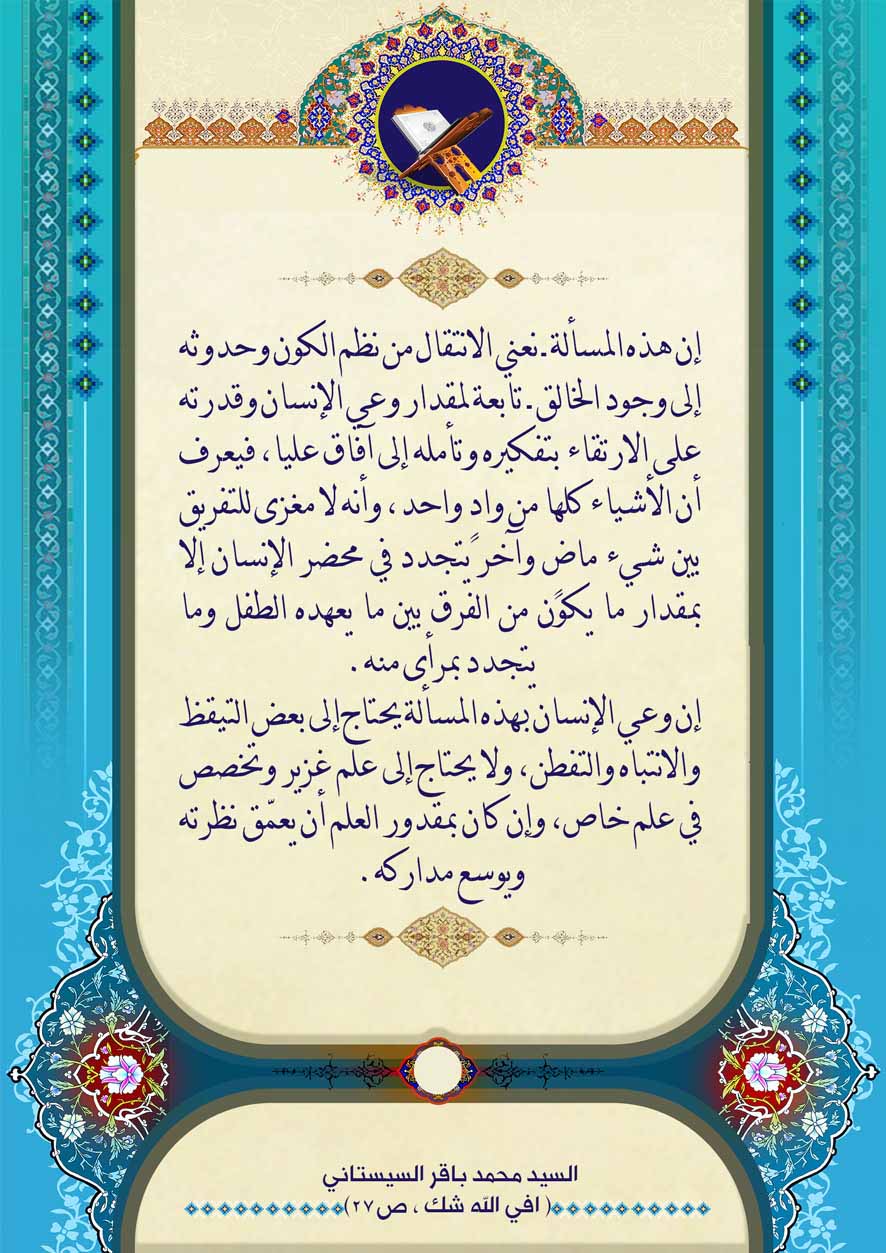 إن هذه المسألة ـ نعني الانتقال من نظم الكون وحدوثه
إلى وجود الخالق ـ تابعة لمقدار وعي الإنسان وقدرته
على الارتقاء بتفكيره وتأمله إلى آفاق عليا ، فيعرف
أن الأشياء كلها من وادٍ واحد ، وأنه لا مغزى للتفريق
بين شيء ماض وآخر يتجدد في محضر الإنسان إلا
بمقدار ما يكون من الفرق بين ما يعهده الطفل وما
يتجدد بمرأى منه .
إن وعي الإنسان بهذه المسألة يحتاج إلى بعض التيقظ
والانتباه والتفطن، ولا يحتاج إلى علم غزير وتخصص
في علم خاص، وإن كان بمقدور العلم أن يعمّق نظرته
ويوسع مداركه .
السيد محمد باقر السيستاني
( افي الله شك ، ص٢٧)